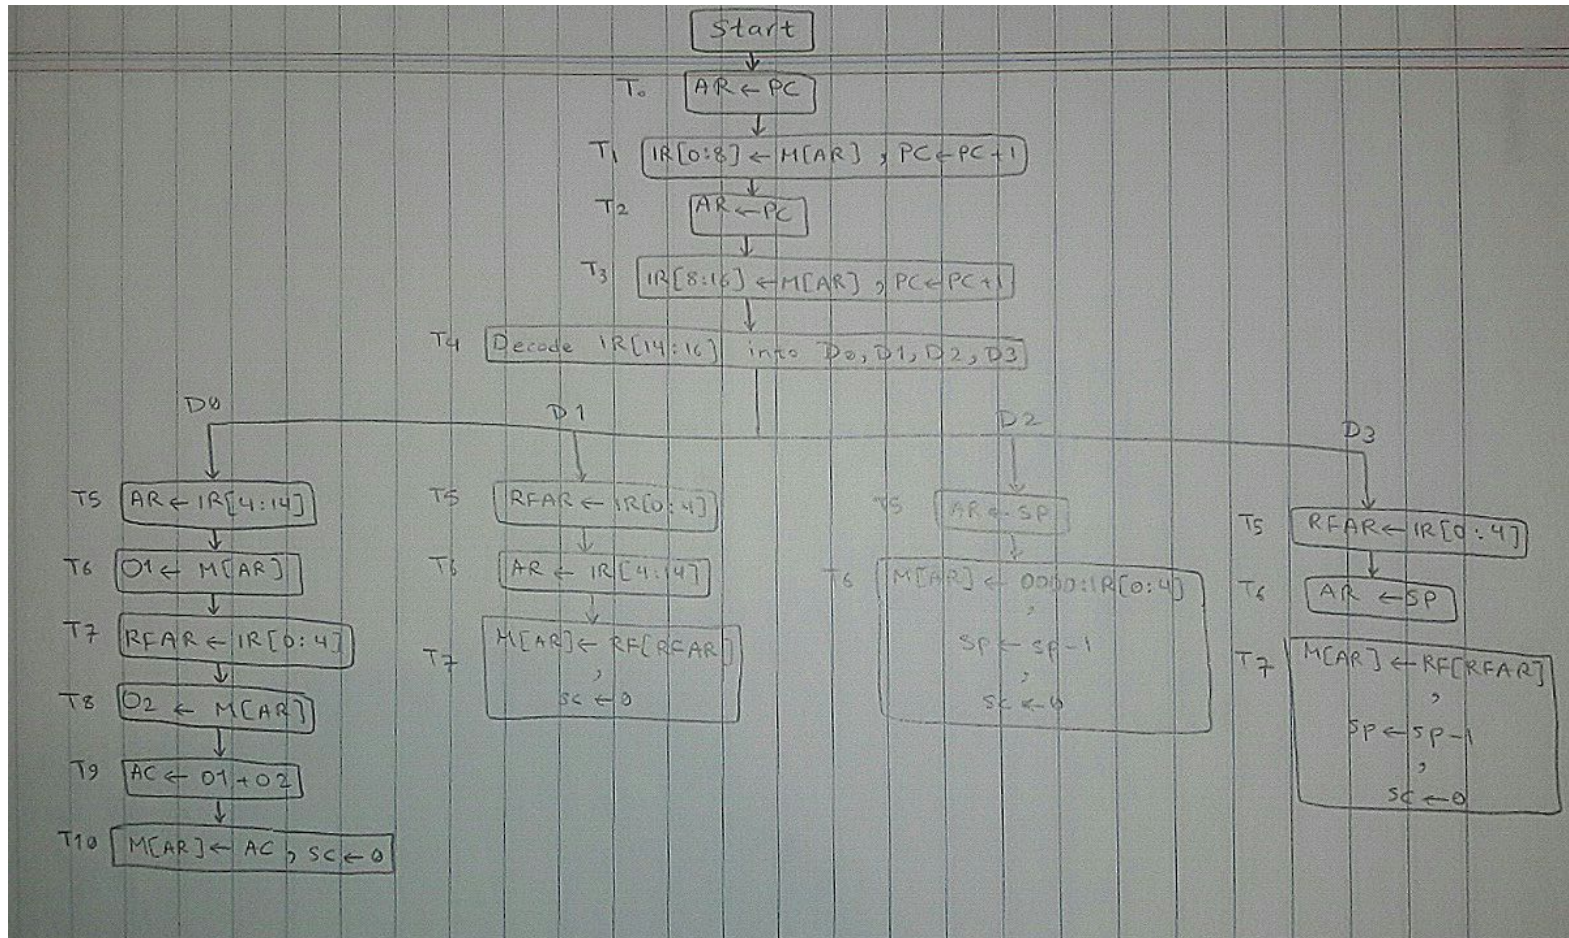 Start
T0 AR ← PC
T1 IR[0:8] ← M[AR] , PC ← PC + 1
T2 AR ← PC
T3 IR[8:16] ← M[AR] , PC ← PC + 1
T4 Decode IR[14:16] into D0, D1, D2, D3
D0
T5 AR ← IR[4:14]
T6 O1 ← M[AR]
T7 RFAR ← IR[0:4]
T8 O2 ← M[AR]
T9 AC ← O1 + O2
T10 M[AR] ← AC , SC ← 0
D1
T5 RFAR ← IR[0:4]
T6 AR ← IR[4:14]
T7 M[AR] ← RF[RFAR]
,
SC ← 0
D2
T5 AR ← SP
T6 M[AR] ← 0000:IR[0:4]
,
SP ← SP - 1
,
SC ← 0
D3
T5 RFAR ← IR[0:4]
T6 AR ← SP
T7 M[AR] ← RF[RFAR]
,
SP ← SP - 1
,
SC ← 0